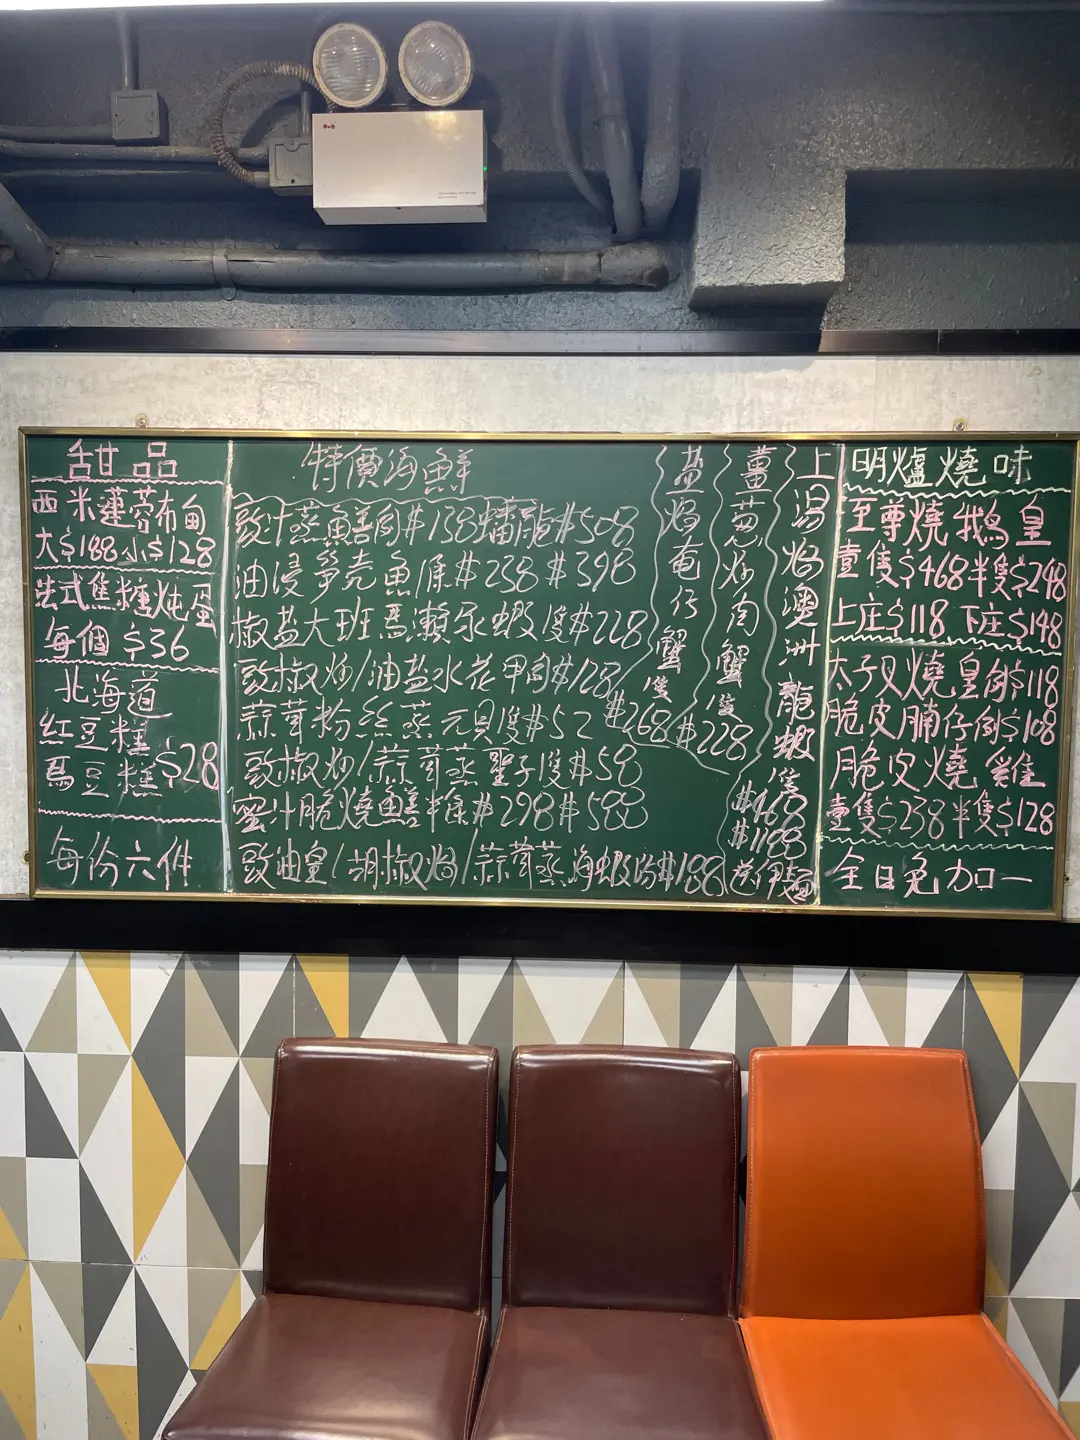 甜品
西米蓮蓉布甸
大$188 小$128
法式焦糖炖蛋
每個 $36
北海道
紅豆糕
馬豆糕 $28
每份六件
特價海鮮
豉汁蒸鱔 $138 蟠龍 $508
油浸笋壳魚/條 $238 $398
椒盐大班馬瀨尿蝦隻$228
豉椒炒/油盐水花甲 $128
蒜茸粉丝蒸元貝隻$52
豉椒炒/蒜茸蒸聖子隻$50
蜜汁脆燒鱔半條$298 $588
豉油皇/胡椒焗/蒜茸蒸海蝦 $188
盐焗奄仔蟹隻$268
薑蔥炒肉蟹隻$228
上湯焗澳洲龍蝦隻
$1188
送伊麵
明爐燒味
至尊燒鵝皇
壹隻$468半隻$248
上庄$118 下庄$148
太子叉燒皇例$118
脆皮腩仔例$108
脆皮燒雞
壹隻$238半隻$128
全日免加一